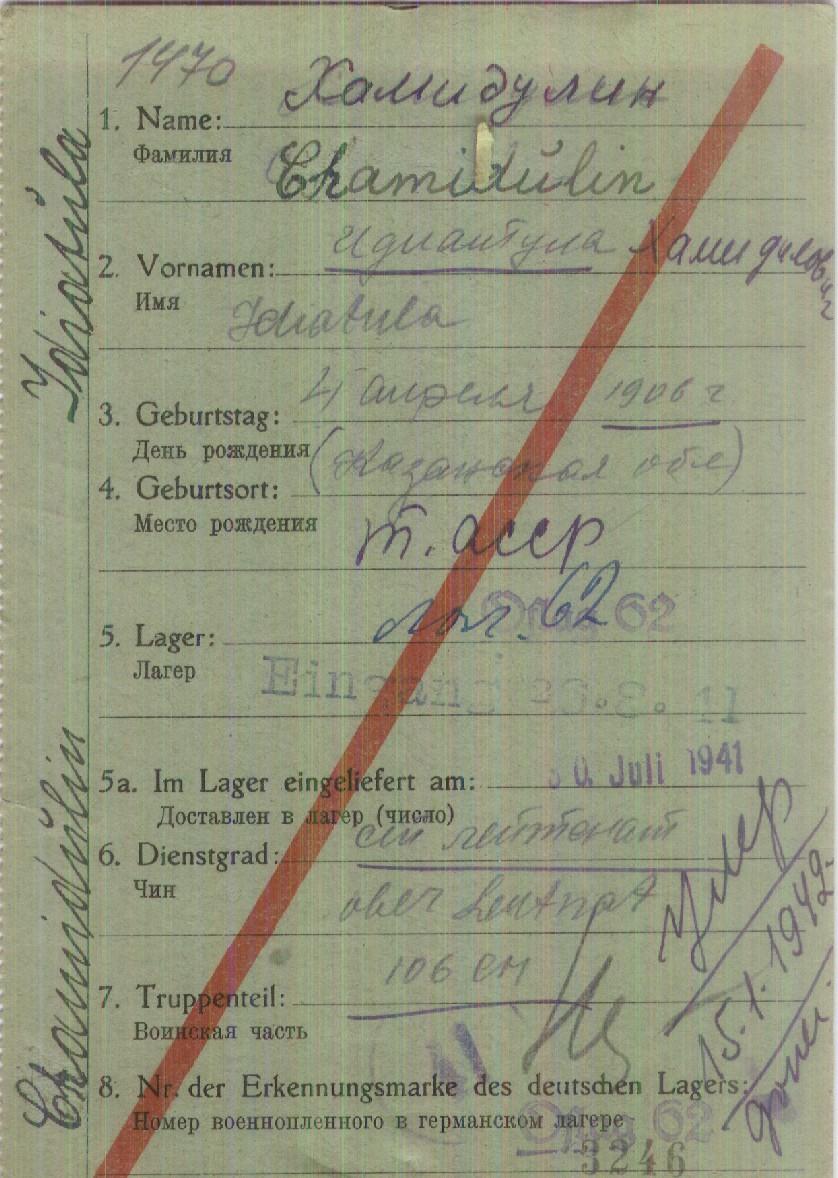 1470
Хамидулин
1. Name:
Фамилия
Chamidŭlin
Идиантула Хамидилович
2. Vornamen:
Имя
Idiatula
4 апреля 1906 г
3. Geburtstag:
День рождения
(Казанская обл)
4. Geburtsort:
Место рождения
Т. АССР
Oflag 62
62
5. Lager:
Лагер
Eingang
5a. Im Lager eingeliefert am: 30. Juli 1941
Доставлен в лагер (число)
лейтенант
6. Dienstgrad:
Чин
ober
106
7. Truppenteil:
Воинская часть
8. Nr. der Erkennungsmarke des deutschen Lagers:
Номер военнопленного в германском лагере
Oflag 62
3246
Умер
15.1.1942
Idiatŭla
Chamidŭlin